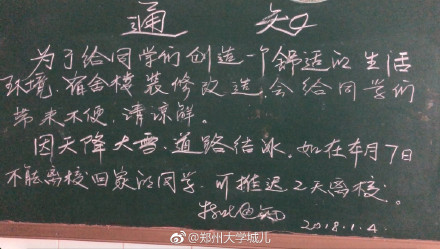 通 知
为了给同学们创造一个舒适的生活
环境,宿舍楼装修改造,会给同学们
带来不便,请谅解。
因天降大雪,道路结冰,如在本月7日
不能离校回家的同学,可推迟2天离校。
特此通知
2018.1.4.
@郑州大学城儿